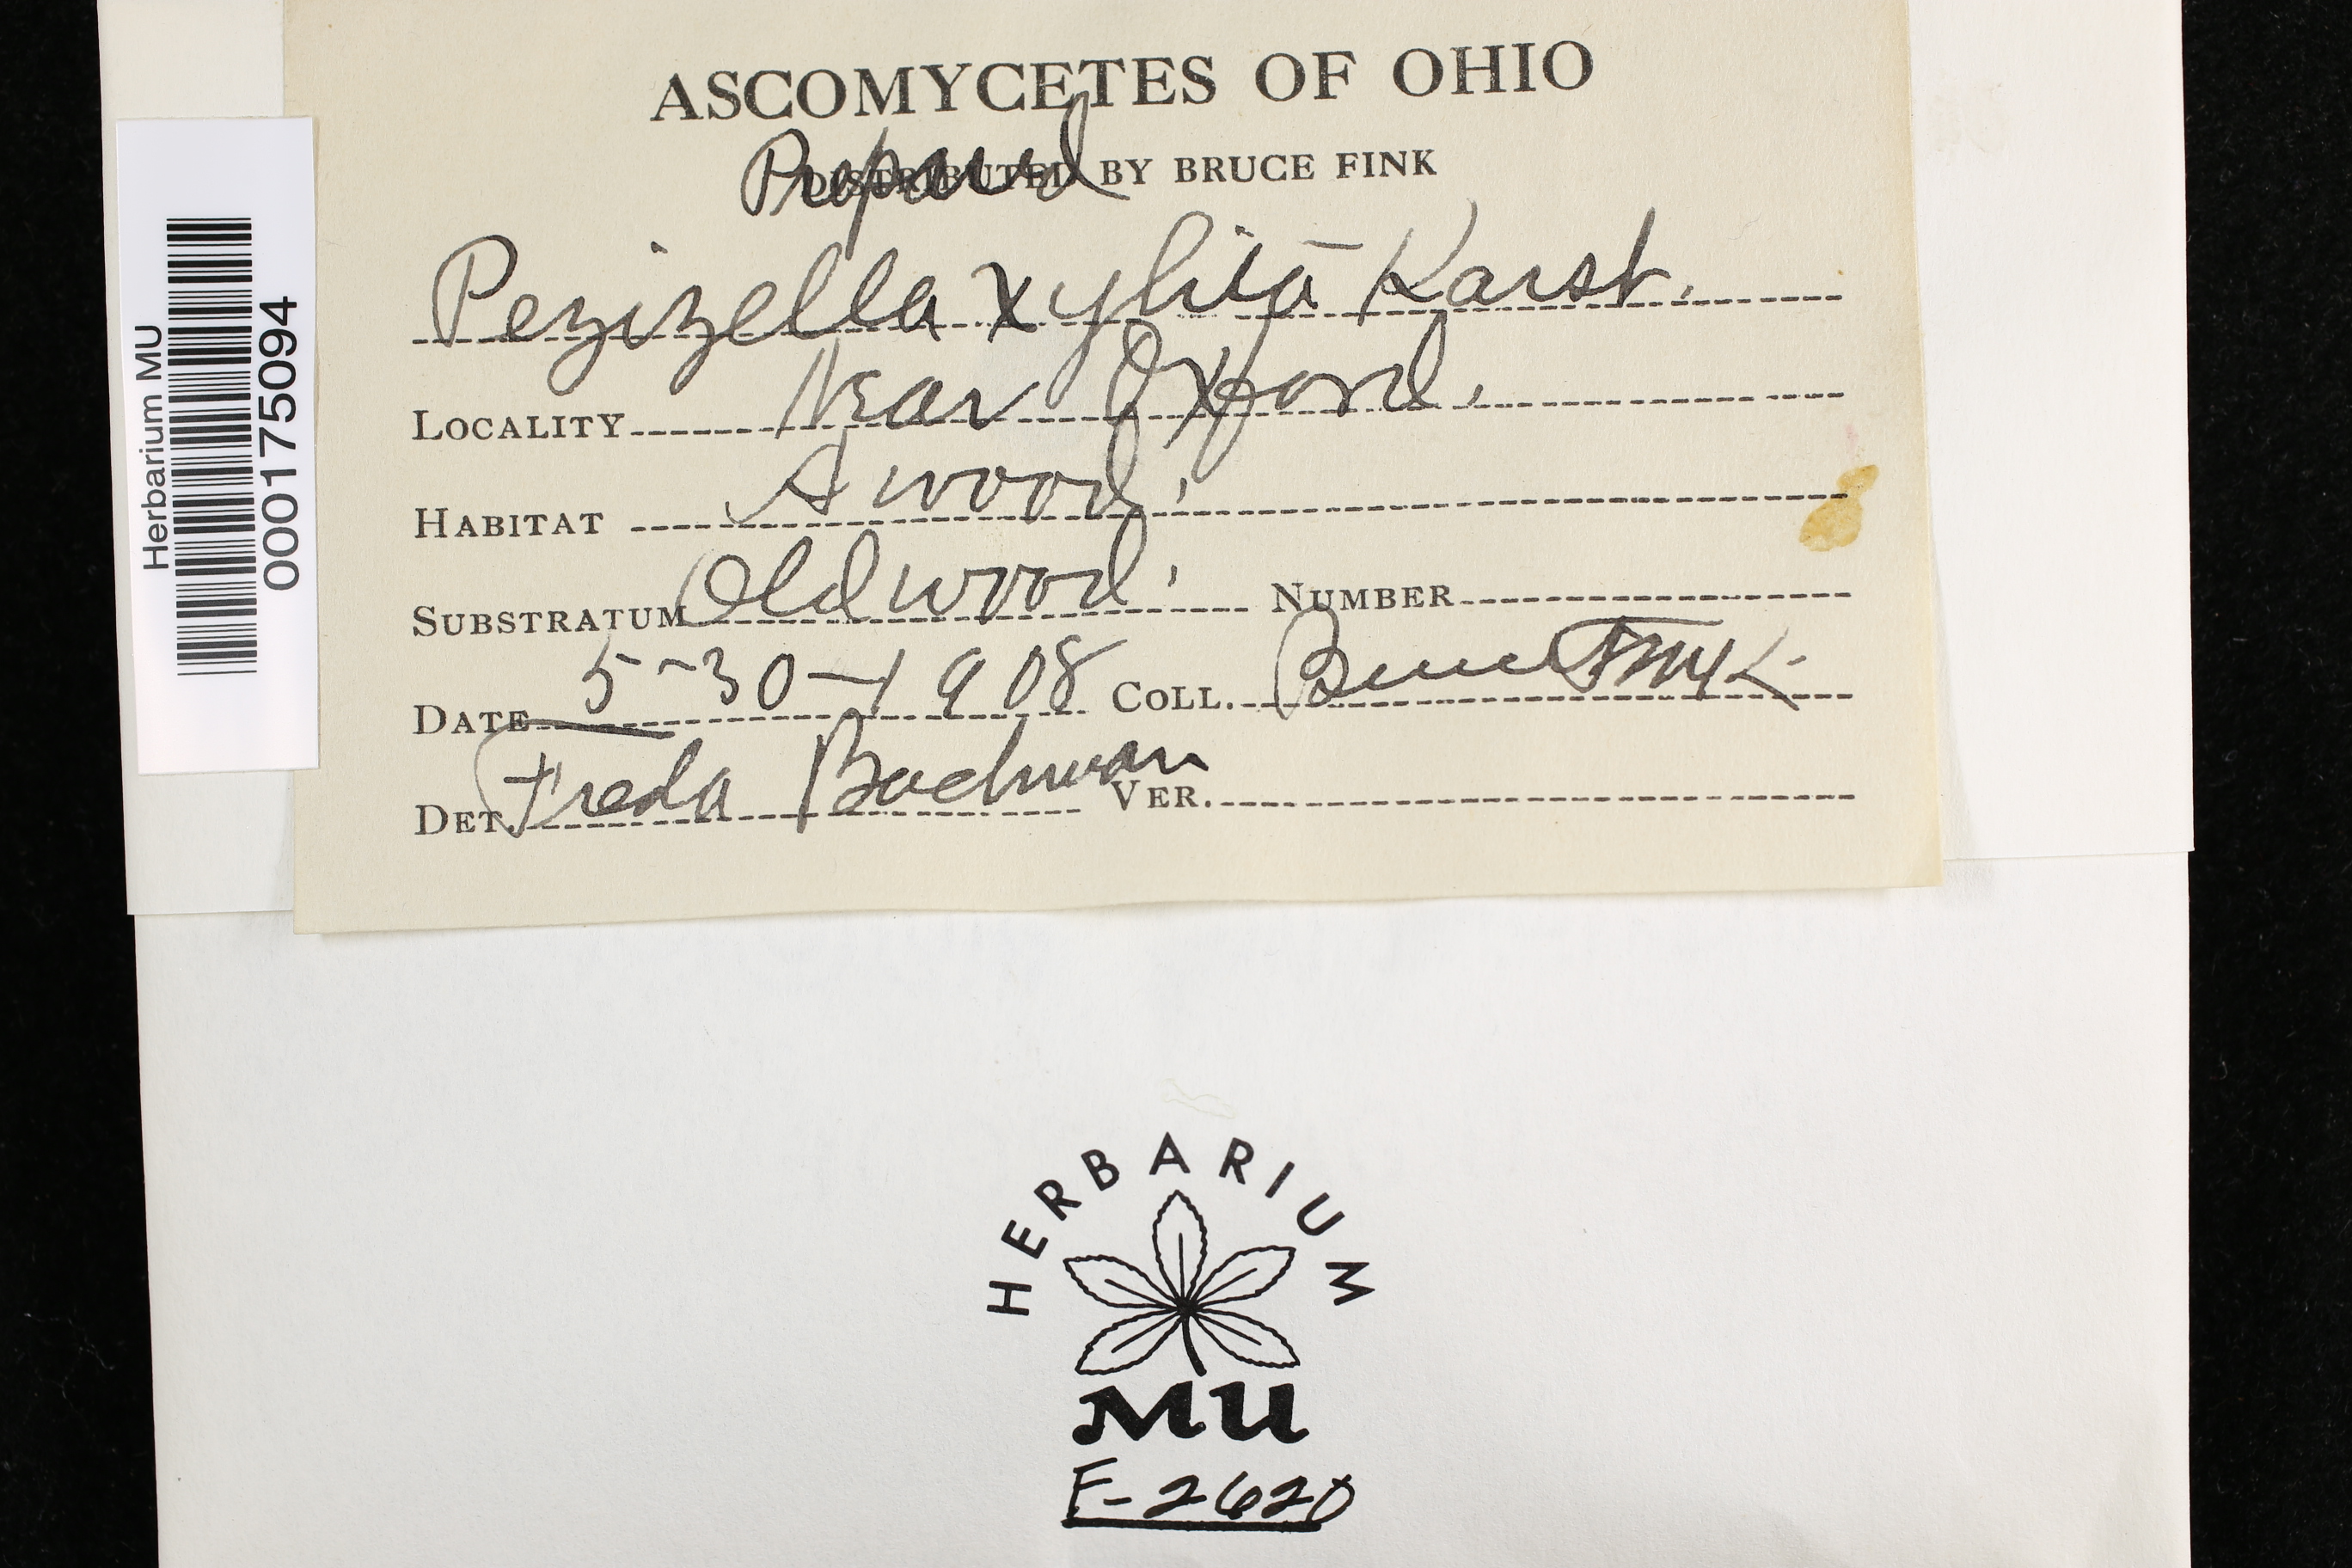 ASCOMYCETES OF OHIO
Prepared
DISTRIBUTED BY BRUCE FINK
Pezizella xylita Karst.
LOCALITY Near Oxford.
HABITAT A wood.
SUBSTRATUM Old wood. NUMBER
DATE 5-30-1908 COLL. Bruce Fink
DET. Freda Bachman VER.
Herbarium MU
000175094
HERBARIUM
MU
F-2620